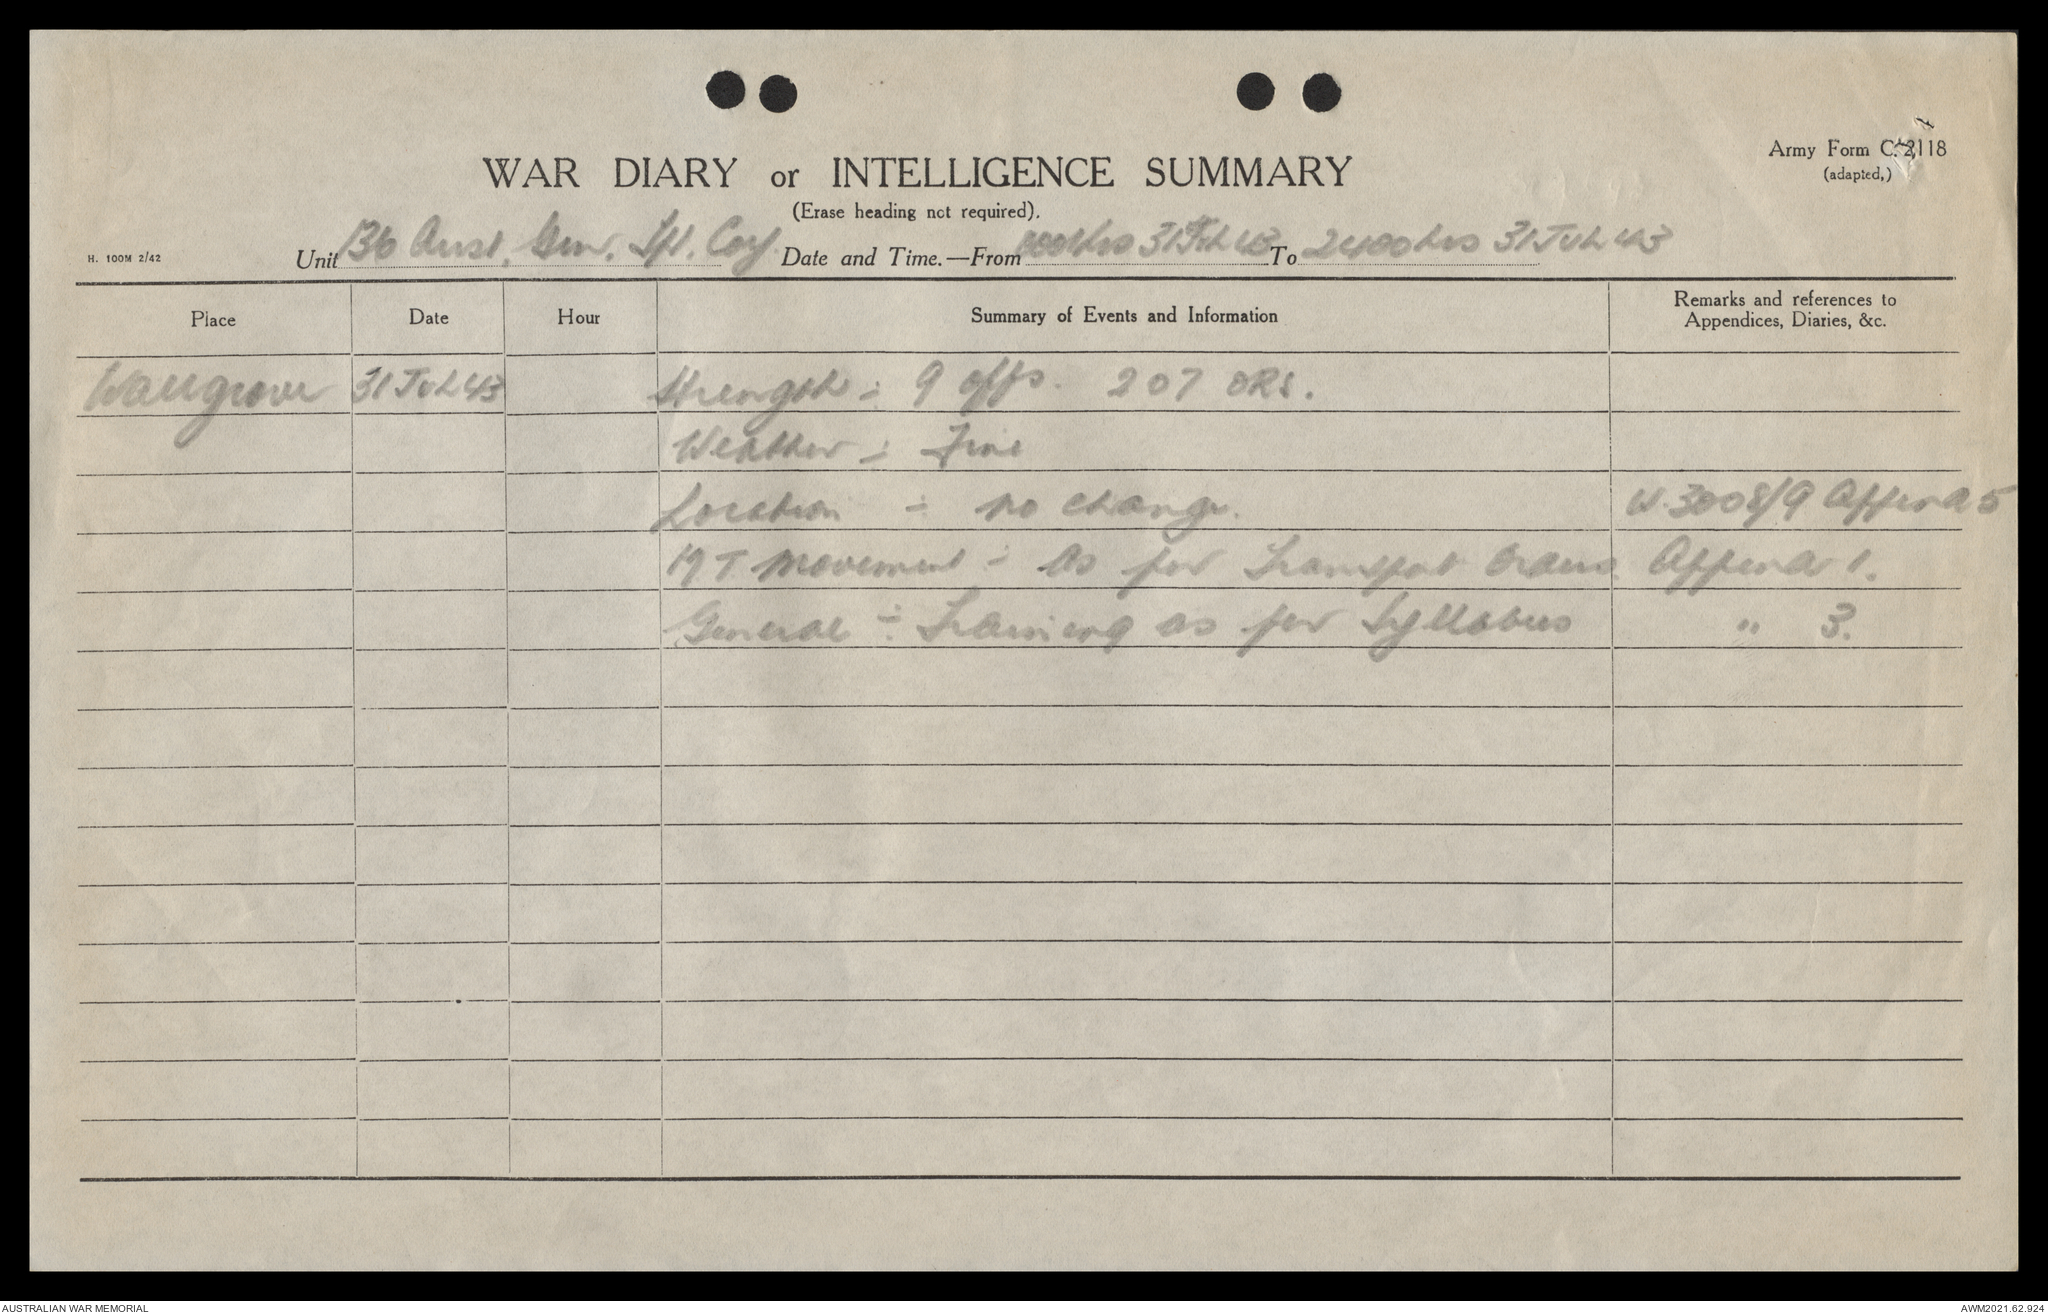 Army Form C. 2118
(adapted,)
WAR DIARY or INTELLIGENCE SUMMARY
(Erase heading not required).
H. 100M 2/42
Unit 136 Aust. Gen. Tpt. Coy. Date and Time.—From 0001hrs 31 Jul 43 To 2400hrs 31 Jul 43
Place Date Hour Summary of Events and Information Remarks and references to Appendices, Diaries, &c.
Wallgrove 31 Jul 43 Strength :- 9 offs. 207 ORs.
Weather :- Fine
Location :- No change. W.3008/9 Append 5
MT Movement :- As per Transport Orders Append 1.
General :- Training as per Syllabus " 3.
AUSTRALIAN WAR MEMORIAL
AWM2021.62.924